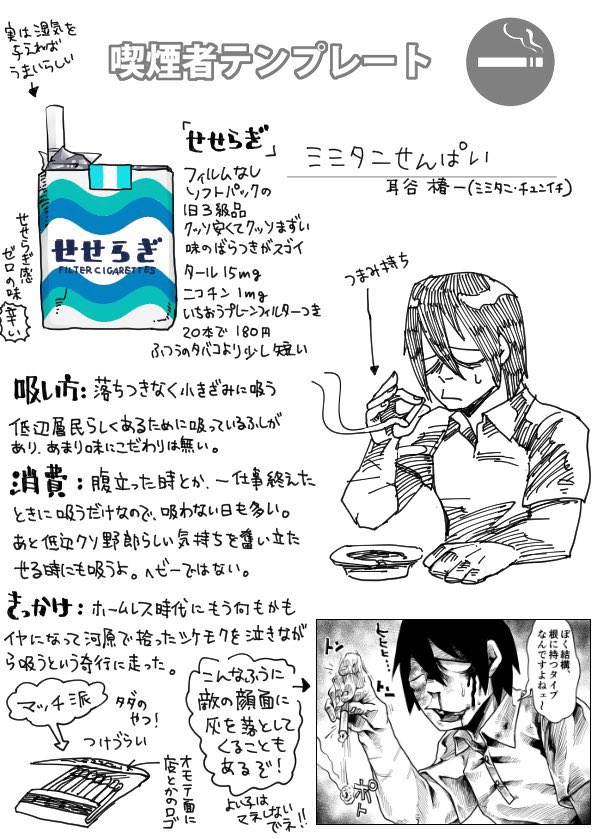 喫煙者テンプレート
実は湿気を
与えれば
うまいらしい
「せせらぎ」
ミミタニせんぱい
耳谷 椿一(ミミタニ・チュンイチ)
フィルムなし
ソフトパックの
旧3級品
クッソ安くてクッソまずい
味のばらつきがスゴイ
タール15mg
ニコチン1mg
いちおうプレーンフィルターつき
20本で180円
ふつうのタバコより少し短い
せせらぎ
FILTER CIGARETTES
せせらぎ感
ゼロの味
辛い
つまみ持ち
吸い方:落ちつきなく小きざみに吸う
低辺層民らしくあるために吸っているふしが
あり、あまり味にこだわりは無い。
消費:腹立った時とか、一仕事終えた
ときに吸うだけなので、吸わない日も多い。
あと低辺クソ野郎らしい気持ちを奮い立た
せる時にも吸うよ。ヘビーではない。
きっかけ:ホームレス時代にもう何もかも
イヤになって河原で拾ったシケモクを泣きなが
ら吸うという奇行に走った。
マッチ派
タダの
やつ!
つけづらい
オモテ面に
店とかのロゴ
こんなふうに
敵の顔面に
灰を落として
くることも
あるぞ!
よい子は
マネしない
でネ!!
ぼく結構、
根に持つタイプ
なんですよねェ〜
ヒヒヒ…
トン
トン
ポト